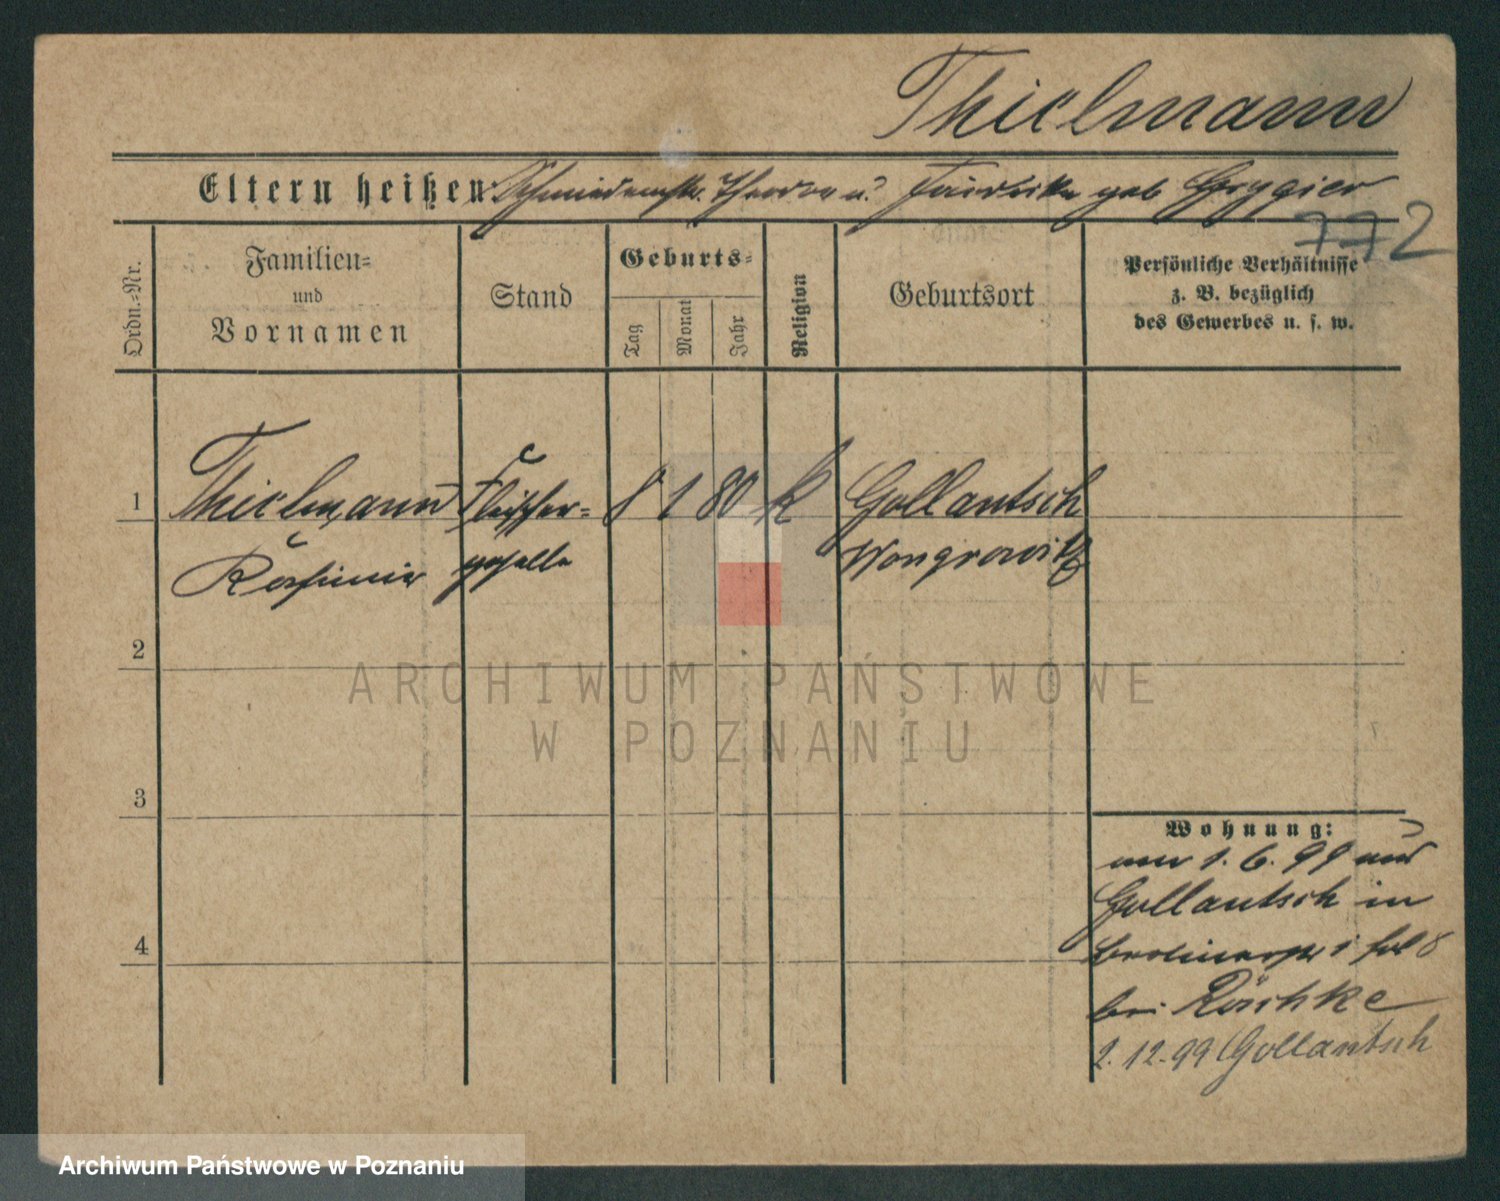 Thielmann
Eltern heißen: Schmiedemstr. Theodor u. geb Grygier
772
Ordn.=Nr.
Familien=
und
Vornamen
Stand
Geburts=
Tag
Monat
Jahr
Religion
Geburtsort
Persönliche Verhältnisse
z. B. bezüglich
des Gewerbes u. s. w.
1 Thielmann Fleischer= 8 1 80 k Gollantsch
Kasimir geselle Wongrowitz
2
3
4
Wohnung:
am 1. 6. 99 aus
Gollantsch in
Berlinerstr
bei Räschke
2. 12. 99 Gollantsch
ARCHIWUM PAŃSTWOWE
W POZNANIU
Archiwum Państwowe w Poznaniu